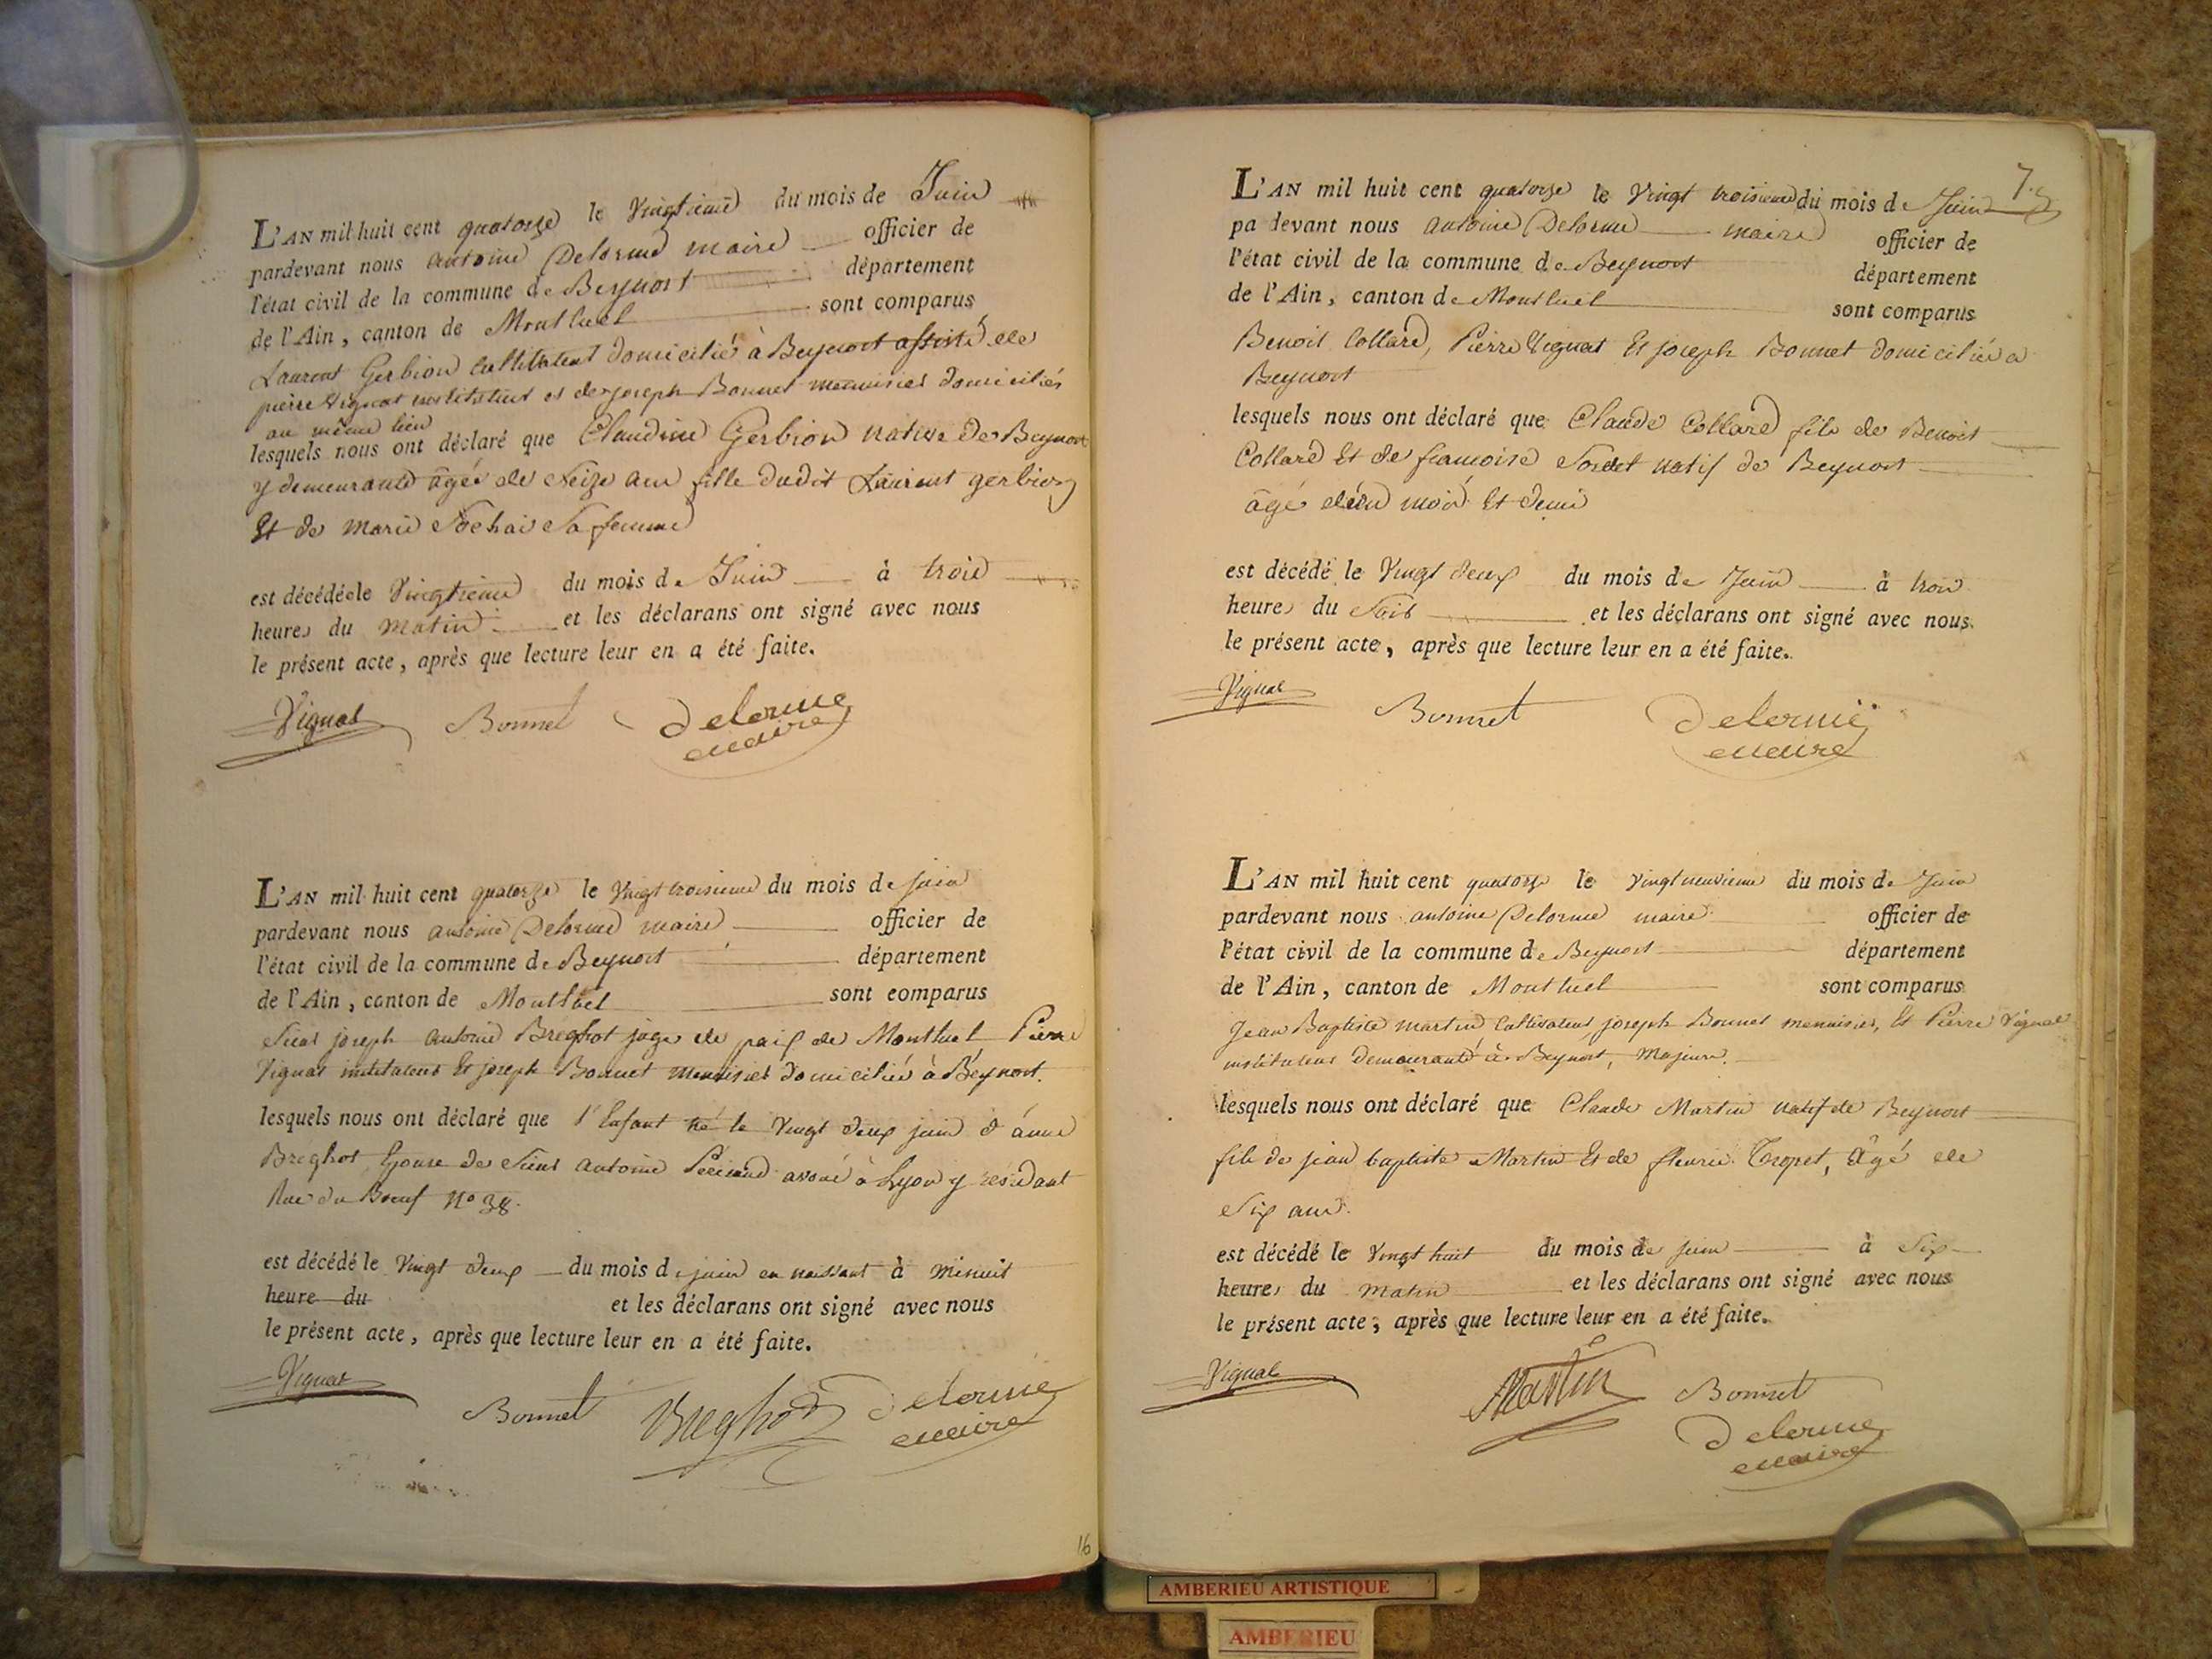 L'AN mil huit cent quatorze le Vingtieme du mois de Juin
pardevant nous antoine Delorme maire officier de
l'état civil de la commune de Beynost département
de l'Ain, canton de Montluel sont comparus
Laurent Gerbion Cultivateur domicilié à Beynost assisté de
pierre Vignat instituteur et de joseph Bonnet menuisier domiciliés
au même lieu
lesquels nous ont déclaré que Claudine Gerbion native de Beynost
y demeurante âgée de Seize ans fille dudit Laurent gerbion
Et de marie Sa femme
est décédée le Vingtieme du mois de Juin à trois
heures du matin et les déclarans ont signé avec nous
le présent acte, après que lecture leur en a été faite.
Vignat Bonnet Delorme
maire
L'AN mil huit cent quatorze le Vingt troisieme du mois de juin
pardevant nous antoine Delorme maire officier de
l'état civil de la commune de Beynost département
de l'Ain, canton de Montluel sont comparus
Sieur joseph antoine Breghot juge de paix de Montluel Pierre
Vignat instituteur Et joseph Bonnet menuisier domiciliés à Beynost.
lesquels nous ont déclaré que l'Enfant né le Vingt deux juin d'anne
Breghot Epouse de Sieur antoine avoué à Lyon y résidant
Rue du Boeuf No 38.
est décédé le Vingt deux du mois de juin en naissant à minuit
heure du et les déclarans ont signé avec nous
le présent acte, après que lecture leur en a été faite.
Vignat Bonnet Breghot Delorme
maire
16
7.
L'AN mil huit cent quatorze le Vingt troisieme du mois de Juin
pa devant nous antoine Delorme maire officier de
l'état civil de la commune de Beynost département
de l'Ain, canton de Montluel sont comparus
Benoit Collard, Pierre Vignat Et joseph Bonnet domiciliés a
Beynost
lesquels nous ont déclaré que Claude Collard fils de Benoit
Collard Et de francoise Sordet natif de Beynost
âgé d'un mois Et demi
est décédé le Vingt deux du mois de Juin à trois
heures du Soir et les déclarans ont signé avec nous
le présent acte, après que lecture leur en a été faite.
Vignat Bonnet Delorme
maire
L'AN mil huit cent quatorze le Vingt neuvieme du mois de Juin
pardevant nous antoine Delorme maire officier de
l'état civil de la commune de Beynost département
de l'Ain, canton de Montluel sont comparus
Jean Baptiste martin Cultivateur joseph Bonnet menuisier, Et Pierre Vignat
instituteur demeurants à Beynost, Majeurs.
lesquels nous ont déclaré que Claude Martin natif de Beynost
fils de jean baptiste Martin Et de fleurie Tropet, âgé de
Six ans.
est décédé le Vingt huit du mois de juin à Six
heures du matin et les déclarans ont signé avec nous
le présent acte, après que lecture leur en a été faite.
Vignat Martin Bonnet
Delorme
maire
AMBERIEU ARTISTIQUE
AMBERIEU